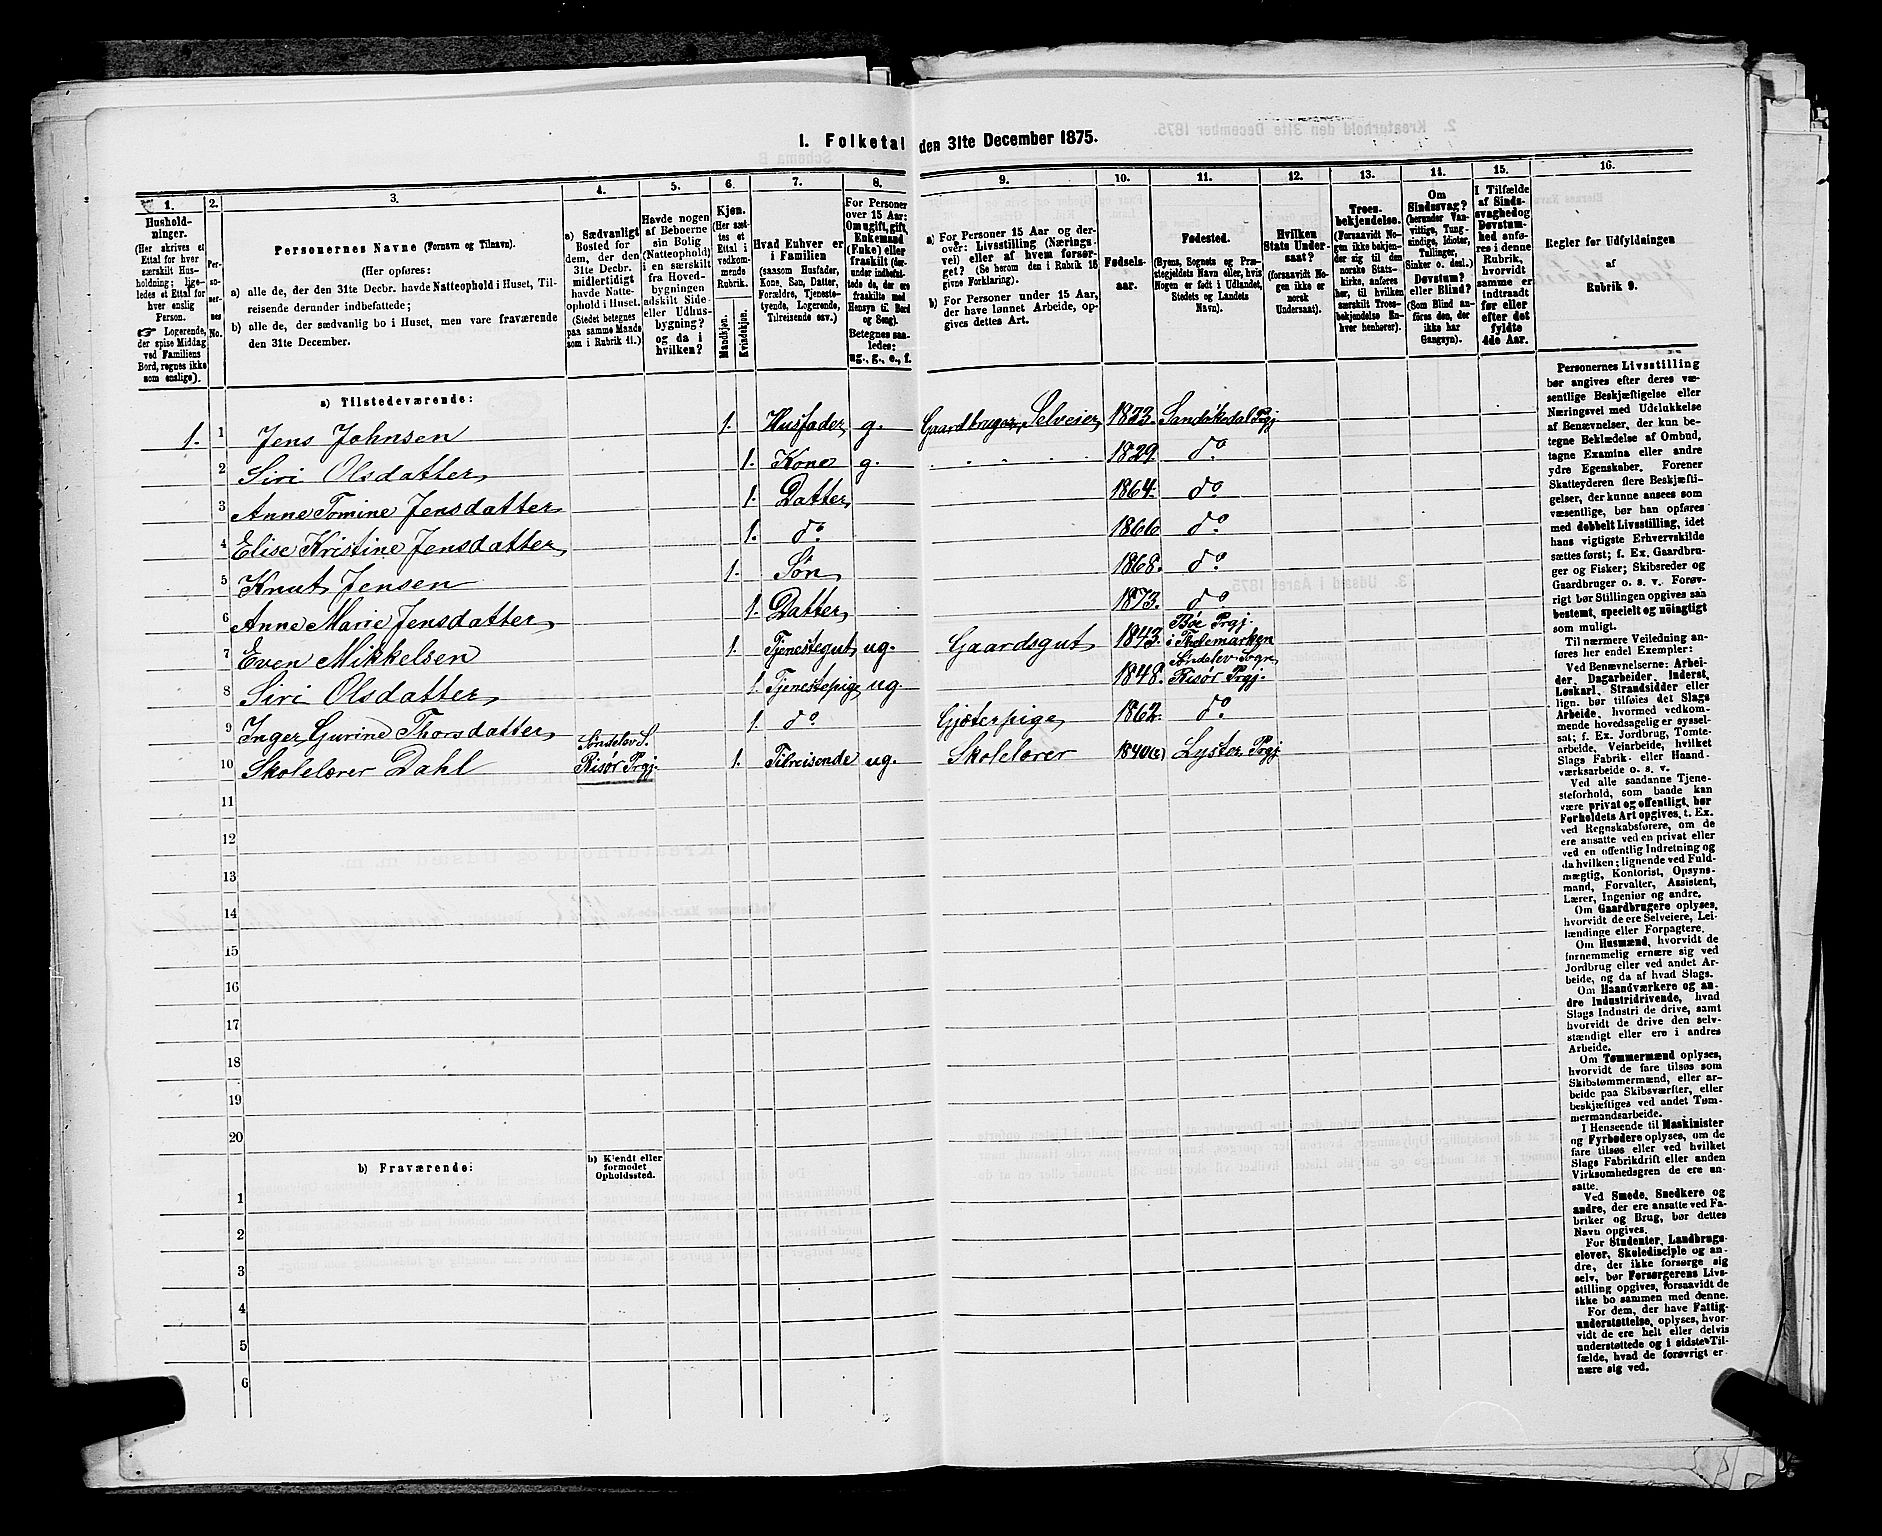 I. Folketal den 31te December 1875.
1.
Husholdninger.
(Her skrives et Ettal for hver særskilt Husholdning; ligeledes et Ettal for hver enslig Person.
☞ Logerende, der spise Middag ved Familiens Bord, regnes ikke som enslige).
2.
Personernes No.
3.
Personernes Navne (Fornavn og Tilnavn).
(Her opføres:
a) alle de, der den 31te Decbr. havde Natteophold i Huset, Tilreisende derunder indbefattede;
b) alle de, der sædvanlig bo i Huset, men vare fraværende den 31te December.
4.
a) Sædvanligt Bosted for dem, der den 31te Decbr. midlertidigt havde Natteophold i Huset.
(Stedet betegnes paa samme Maade som i Rubrik 11.)
5.
Havde nogen af Beboerne sin Bolig (Natteophold) i en særskilt fra Hovedbygningen adskilt Side- eller Udhusbygning? og da i hvilken?
6.
Kjøn. (Her sættes et Ettal i vedkommende Rubrik.
Mandkjøn. Kvindekjøn.
7.
Hvad Enhver er i Familien
(saasom Husfader, Kone, Søn, Datter, Forældre, Tjenestetyende, Logerende, Tilreisende osv.)
8.
For Personer over 15 Aar: Om ugift, gift, Enkemand (Enke) eller fraskilt (herunder indbefattede de, der ere fraskilte med Hensyn til Bord og Seng).
Betegnes saaledes: ug., g., e., f.
9.
a) For Personer 15 Aar og derover: Livsstilling (Næringsvei) eller af hvem forsørget? (Se herom den i Rubrik 16 givne Forklaring).
b) For Personer under 15 Aar, der have lønnet Arbeide, opgives dettes Art.
10.
Fødselsaar.
11.
Fødested.
(Byens, Sognets og Præstegjeldets Navn eller, hvis Nogen er født i Udlandet, Stedets og Landets Navn).
12.
Hvilken Stats Undersaat?
(forsaavidt Nogen ikke er norsk Undersaat).
13.
Troesbekjendelse.
(Forsaavidt Nogen ikke bekjender sig til den norske Statskirke, anføres her, til hvilken særskilt Troesbekjendelse Enhver henhører).
14.
Om Sindssvag? (herunder Vanvittige, Tungsindige, Idioter, Tullinger, Sinker o. desl.)
Døvstum? eller Blind? (Som Blind anføres den, der ikke har Gangsyn).
15.
I Tilfælde af Sindssvaghed og Døvstumhed anføres i denne Rubrik, hvorvidt samme er indtraadt før eller efter det fyldte 4de Aar.
16.
Regler for Udfyldningen af Rubrik 9.
a) Tilstedeværende:
1. 1 Jens Johnsen 1. Husfader g. Gaardbruger, Selveier 1823. Sandøkedal Prgj
2 Siri Olsdatter 1. Kone g. 1829. do
3 Anne Tomine Jensdatter 1. Datter 1864. do
4 Elise Kristine Jensdatter 1. do 1866 do
5 Knut Jensen 1. Søn 1868. do
6 Anne Marie Jensdatter 1. Datter 1873. do
7 Even Mikkelsen 1. Tjenestegut ug. Gaardsgut 1843. Bøe Prgj. i Thelemarken
8 Siri Olsdatter 1. Tjenestepige ug. 1848. Søndelev Sogn Risør Prgj.
9 Inger Gurine Thorsdatter 1. do Gjæterpige 1862. do
10 Skolelærer Dahl Søndelev S. Risør Prgj. 1. Tilreisende ug. Skolelærer 1840 Lyster Prgj
11
12
13
14
15
16
17
18
19
20
b) Fraværende:
b) Kjendt eller formodet Opholdssted.
1
2
3
4
5
6
Personernes Livsstilling
bør angives efter deres væ-
sentlige Beskjæftigelse eller
Næringsvei med Udelukkelse
af Benævnelser, der kun be-
tegne Beklædelse af Ombud,
tagne Examina eller andre
ydre Egenskaber. Forener
Skatteyderen flere Beskjæfti-
gelser, der kunne ansees som
væsentlige, bør han opføres
med dobbelt Livsstilling, idet
hans vigtigste Erhvervskilde
sættes først; f. Ex. Gaardbru-
ger og Fisker; Skibsreder og
Gaardbruger o. s. v. Forøv-
rigt bør Stillingen opgives saa
bestemt, specielt og nøiagtigt
som muligt.
Til nærmere Veiledning an-
føres her endel Exempler:
Ved Benævnelserne: Arbei-
der, Dagarbeider, Inderst,
Løskarl, Strandsidder eller
lign. bør tilføies det Slags
Arbeide, hvormed vedkom-
mende hovedsagelig er syssel-
sat; f. Ex. Jordbrug, Tomte-
arbeide, Veiarbeide, hvilket
Slags Fabrik- eller Haand-
værksarbeide o. s. v.
Ved alle saadanne Tjene-
steforhold, som baade kan
være privat og offentligt, bør
Forholdets Art opgives, t. Ex.
ved Regnskabsførere, om de
ere ansatte ved en privat eller
ved en offentlig Indretning og
da hvilken; lignende ved Fuld-
mægtig, Kontorist, Opsyns-
mand, Forvalter, Assistent,
Lærer, Ingeniør og andre.
Om Gaardbrugere oplyses,
hvorvidt de ere Selveiere, Lei-
lændinge eller Forpagtere.
Om Husmænd, hvorvidt de
fornemmelig ernære sig ved
Jordbrug eller ved andet Ar-
beide, og da af hvad Slags.
Om Haandværkere og an-
dre Industridrivende, hvad
Slags Industri de drive, samt
hvorvidt de drive den selv-
stændigt eller ere i andres
Arbeide.
Om Tømmermænd oplyses,
hvorvidt de fare tilsøs som
Skibstømmermænd, eller ar-
beide paa Skibsværfter, eller
beskjæftiges ved andet Tøm-
mermandsarbeide.
I Henseende til Maskinister
og Fyrbødere oplyses, om de
fare tilsøs eller ved hvilket
Slags Fabrikdrift eller anden
Virksomhedsgren de ere an-
satte.
Ved Smede, Snedkere og
andre, der ere ansatte ved Fa-
briker og Brug, bør dettes
Navn opgives.
For Studenter, Landbrugs-
elever, Skoledisciple og an-
dre, der ikke forsørge sig
selv, bør Forsørgerens Livs-
stilling opgives, forsaavidt de
ikke bo sammen med denne.
For dem, der have Fattig-
understøttelse, oplyses, hvor-
vidt de ere helt eller delvis
understøttede og i sidste Til-
fælde, hvad de forøvrigt er-
nære sig ved.